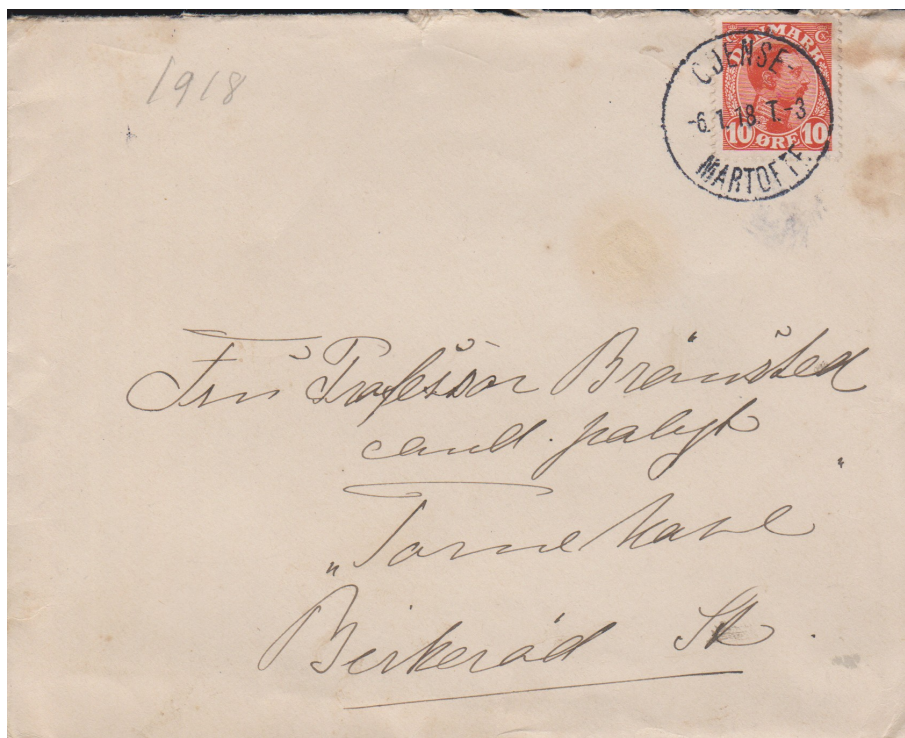 1918
DANMARK
10 ØRE 10
ODENSE-
-6.1.18. T.-3
MARTOFTE
Fru Professor Brönsted
cand. polyt
"Tornehave"
Birkeröd St.